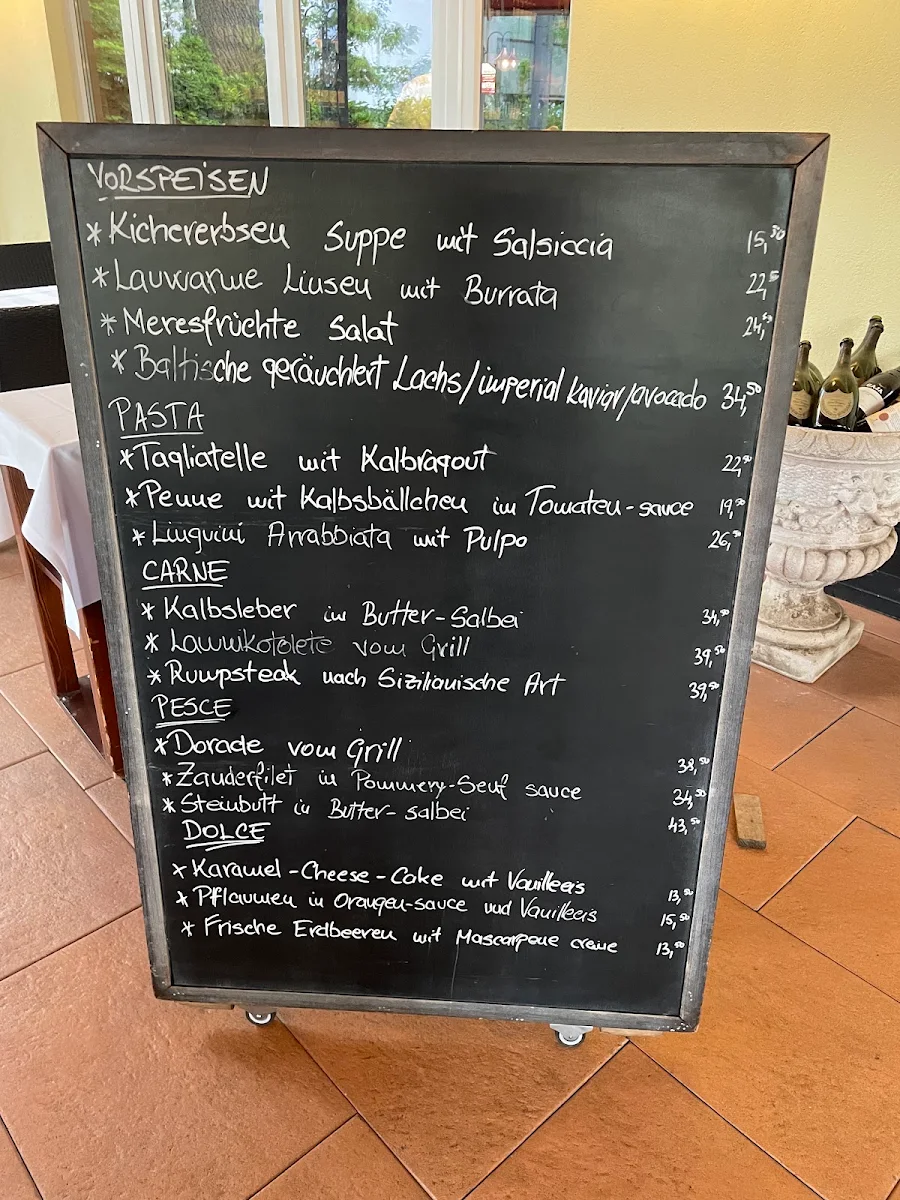 VORSPEISEN
* Kichererbsen Suppe mit Salsiccia 15,50
* Lauwarme Linsen mit Burrata 22,5
* Meresfrüchte Salat 24,50
* Baltische geräuchert Lachs/imperial kaviar/avocado 34,50
PASTA
* Tagliatelle mit Kalbragout 22,50
* Penne mit Kalbsbällchen in Tomaten-sauce 19,50
* Linguini Arrabbiata mit Pulpo 26,50
CARNE
* Kalbsleber in Butter-Salbei 34,50
* Lammkotolete vom Grill 39,50
* Rumpsteak nach Sizilianische Art 39,50
PESCE
* Dorade vom Grill 38,50
* Zanderfilet in Pommery-Senf sauce 34,50
* Steinbutt in Butter-salbei 43,50
DOLCE
* Karamel-Cheese-Cake mit Vanilleeis 13,50
* Pflaumen in Orangen-sauce und Vanilleeis 15,50
* Frische Erdbeeren mit Mascarpone creme 13,50